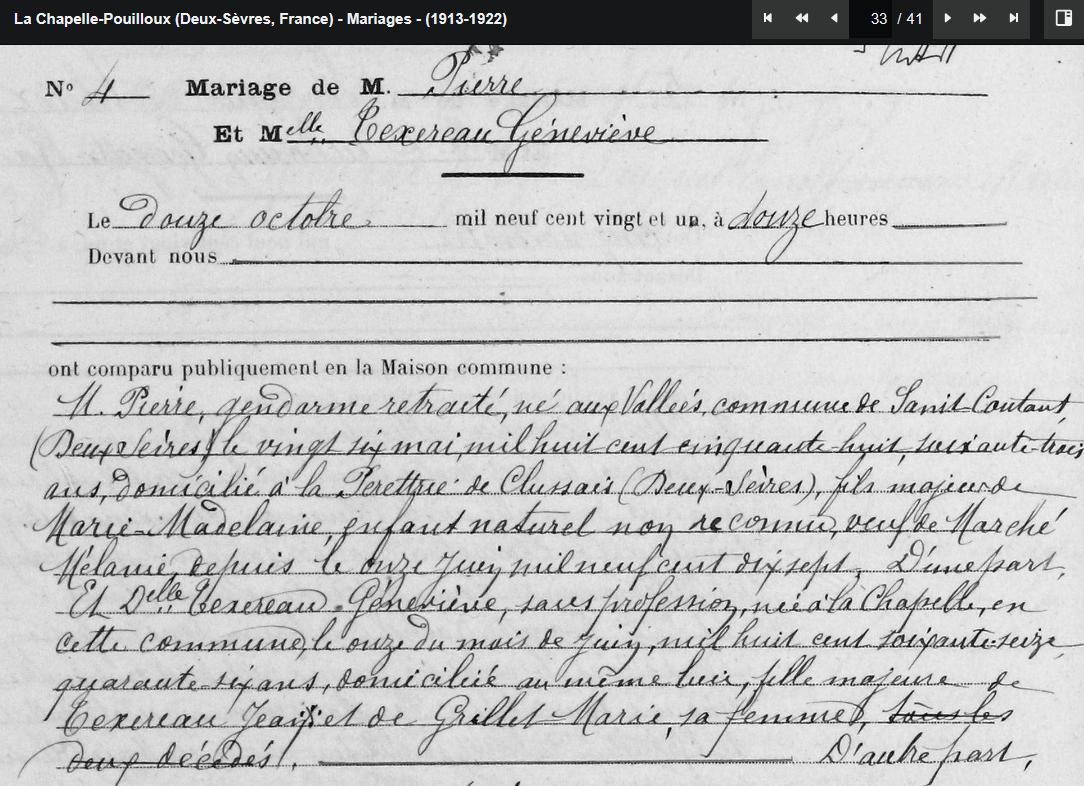 La Chapelle-Pouilloux (Deux-Sèvres, France) - Mariages - (1913-1922)
33 / 41
Nº 4 Mariage de M. Pierre
Et Melle Texereau Géneviève
Le douze octobre mil neuf cent vingt et un, à douze heures
Devant nous
ont comparu publiquement en la Maison commune :
M. Pierre, gendarme retraité, né aux Vallées, commune de Sanit-Coutant
(Deux-Sèvres) le vingt six mai, mil huit cent cinquante-huit, soixante-trois
ans, domicilié à la de Clussais (Deux-Sèvres), fils majeur de
Marie-Madelaine, enfant naturel non reconnu, veuf de Marché
Mélanie depuis le onze Juin mil neuf cent dix sept. D'une part,
Et Delle Texereau Géneviève, sans profession, née à la Chapelle, en
cette commune, le onze du mois de Juin, mil huit cent soixante-seize
quarante-six ans, domiciliée au même lieu, fille majeure de
Texereau Jean et de Grillet Marie, sa femme, tous les
deux décédés. D'autre part,